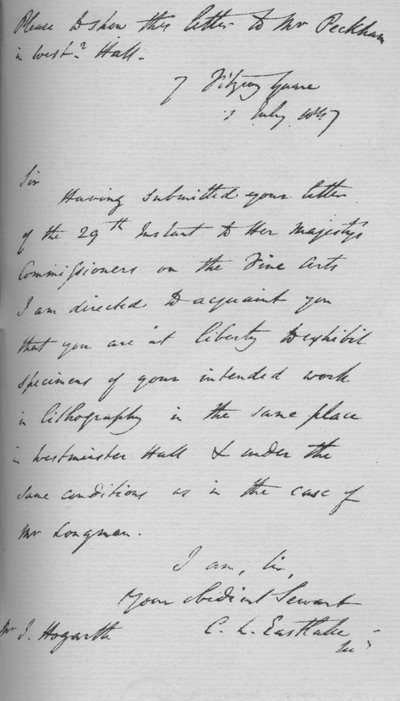 Please to show this letter to Mr Peckham
in West.r Hall.
7 Fitzroy Square
July 1847
Sir
Having submitted your letter
of the 29th Instant to Her Majesty's
Commissioners on the Fine Arts
I am directed to acquaint you
that you are at liberty to exhibit
specimens of your intended work
in lithography in the same place
in Westminster Hall & under the
same conditions as in the case of
Mr Longman.
I am, Sir,
Your Obedient Servant
Mr J. Hogarth C. L. Eastlake
Sec.y